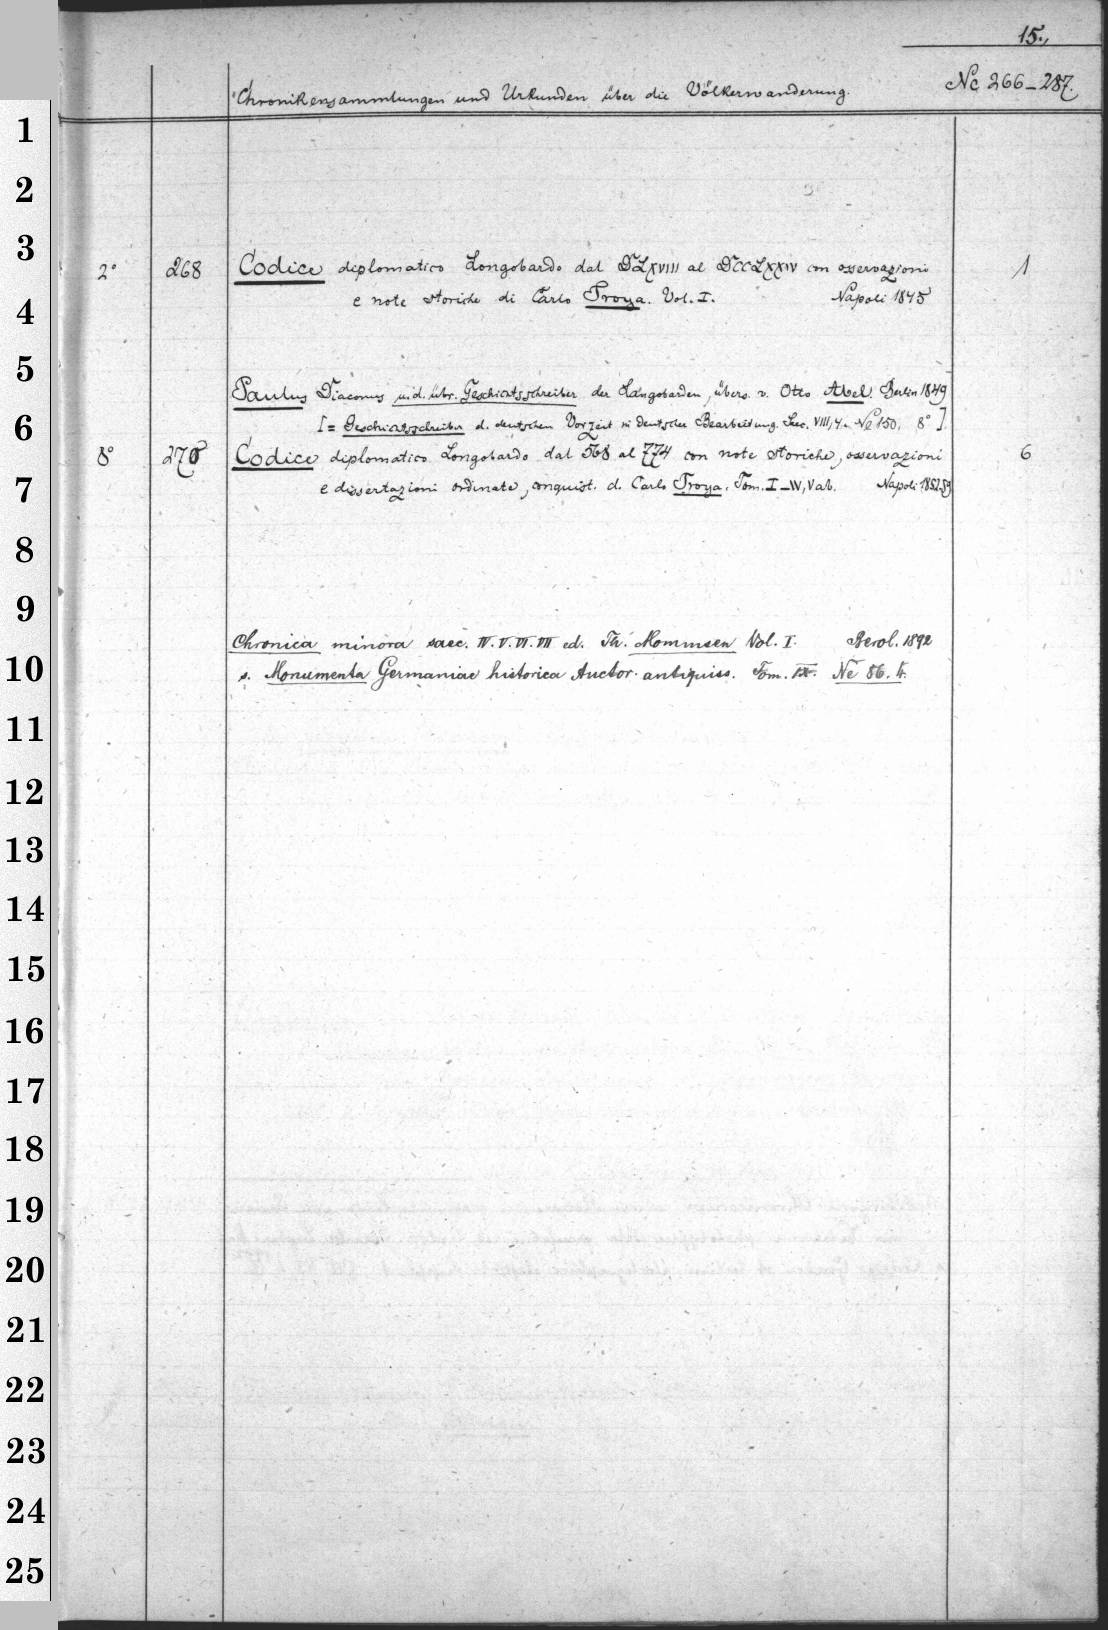 15.,
Nc 266-287.
Chronikensammlungen und Urkunden über die Völkerwanderung.
1
2
3
2° 268 Codice diplomatico Longobardo dal DLXVIII al DCCLXXIV con osservazioni 1
e note storiche di Carlo Troya. Vol. I. Napoli 1845
4
5
Paulus Diaconus u. d. übr. Geschichtsschreiber der Langobarden, übers. v. Otto Abel. Berlin 1849
[= Geschichtsschreiber d. deutschen Vorzeit in deutscher Bearbeitung. Saec. VIII, 4. Nc 150. 8°].
6
8° 270 Codice diplomatico Longobardo dal 568 al 774 con note storiche, osservazioni 6
e dissertazioni ordinate, conquist. d. Carlo Troya. Tom. I-IV, Vab. Napoli 1852-59
7
8
9
Chronica minora saec. IV. V. VI. VII ed. Th. Mommsen Vol. I. Berol. 1892
s. Monumenta Germaniae historica Auctor. antiquiss. Tom. IX. Ne 86. 4.
10
11
12
13
14
15
16
17
18
19
20
21
22
23
24
25